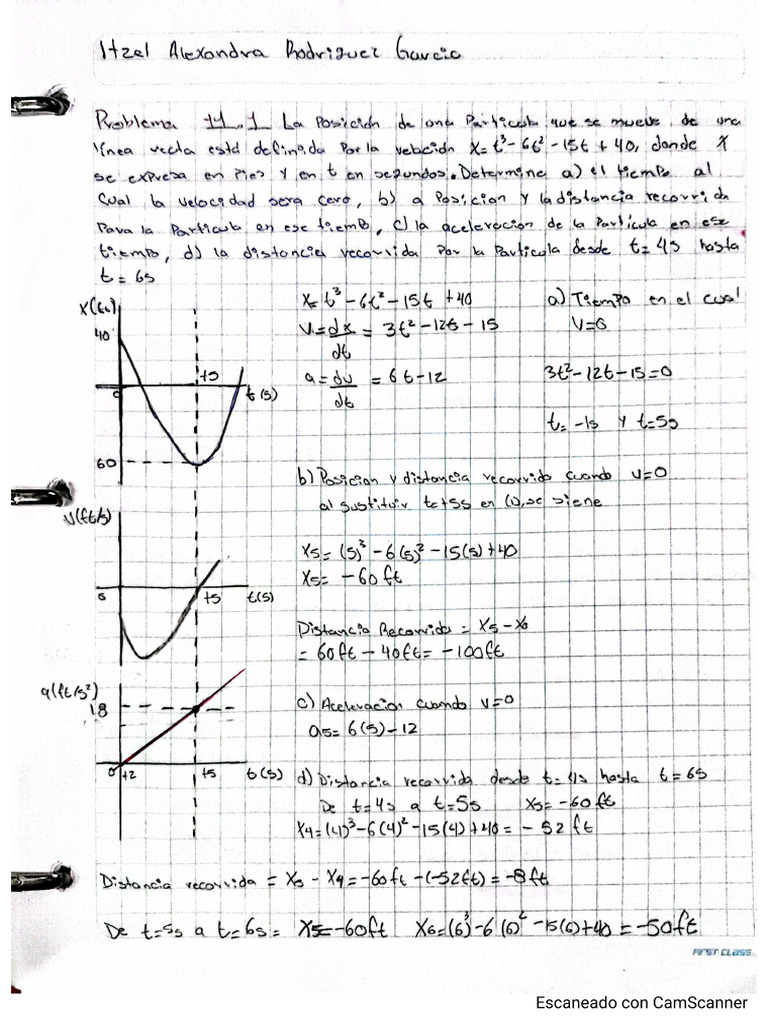 Itzel Alexandra Rodriguez Garcia
Problema 11.1 La Posición de una Particula que se mueve de una
línea recta está definida Por la relación X=t³-6t²-15t+40, donde X
se expresa en Pies y en t en segundos. Determine a) el tiempo al
Cual la velocidad sera cero, b) a Posicion y la distancia recorrida
Para la Particula en ese tiempo, c) la aceleracion de la Particula en ese
tiempo, d) la distancia recorrida Por la Particula desde t=4s hasta
t=6s
X(ft)
40
0
+5
t(s)
60
X=t³-6t²-15t+40
V=dx/dt=3t²-12t-15
a=dv/dt=6t-12
a) Tiempo en el cual
V=0
3t²-12t-15=0
t=-1s y t=5s
b) Posicion y distancia recorrida cuando v=0
al sustituir t=+5s en (1), se tiene
X5=(5)³-6(5)²-15(5)+40
X5=-60ft
Distancia Recorrida = X5-X0
=60ft-40ft=-100ft
V(ft/s)
0
+5
t(s)
a(ft/s²)
18
0
+2
+5
t(s)
c) Aceleracion cuando v=0
a5=6(5)-12
d) Distancia recorrida desde t=4s hasta t=6s
De t=4s a t=5s X5=-60ft
X4=(4)³-6(4)²-15(4)+40=-52ft
Distancia recorrida = X5-X4=-60ft-(-52ft)=-8ft
De t=5s a t=6s= X5=-60ft X6=(6)³-6(6)²-15(6)+40=-50ft
FIRST CLASS
Escaneado con CamScanner